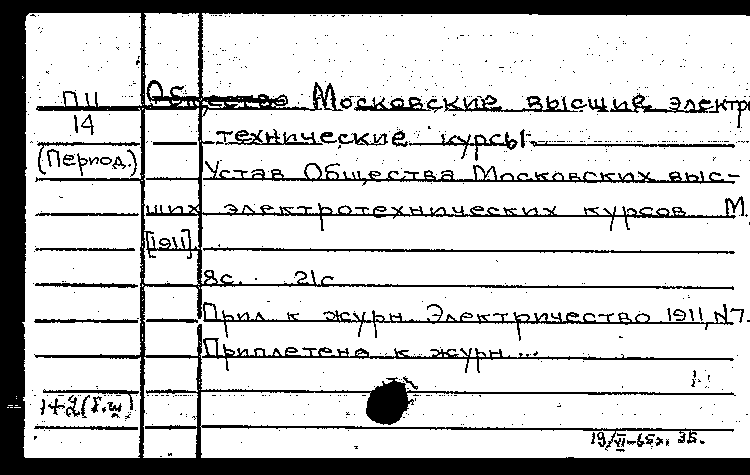 П 11
14
(Период.)
Общество Московские высшие электро
технические курсы.
Устав Общества Московских выс-
ших электротехнических курсов М,
[1911].
8с. 21с
Прил к журн. Электричество 1911, №7.
Приплетена к журн...
1+2
19/VI-65г. ЗБ.